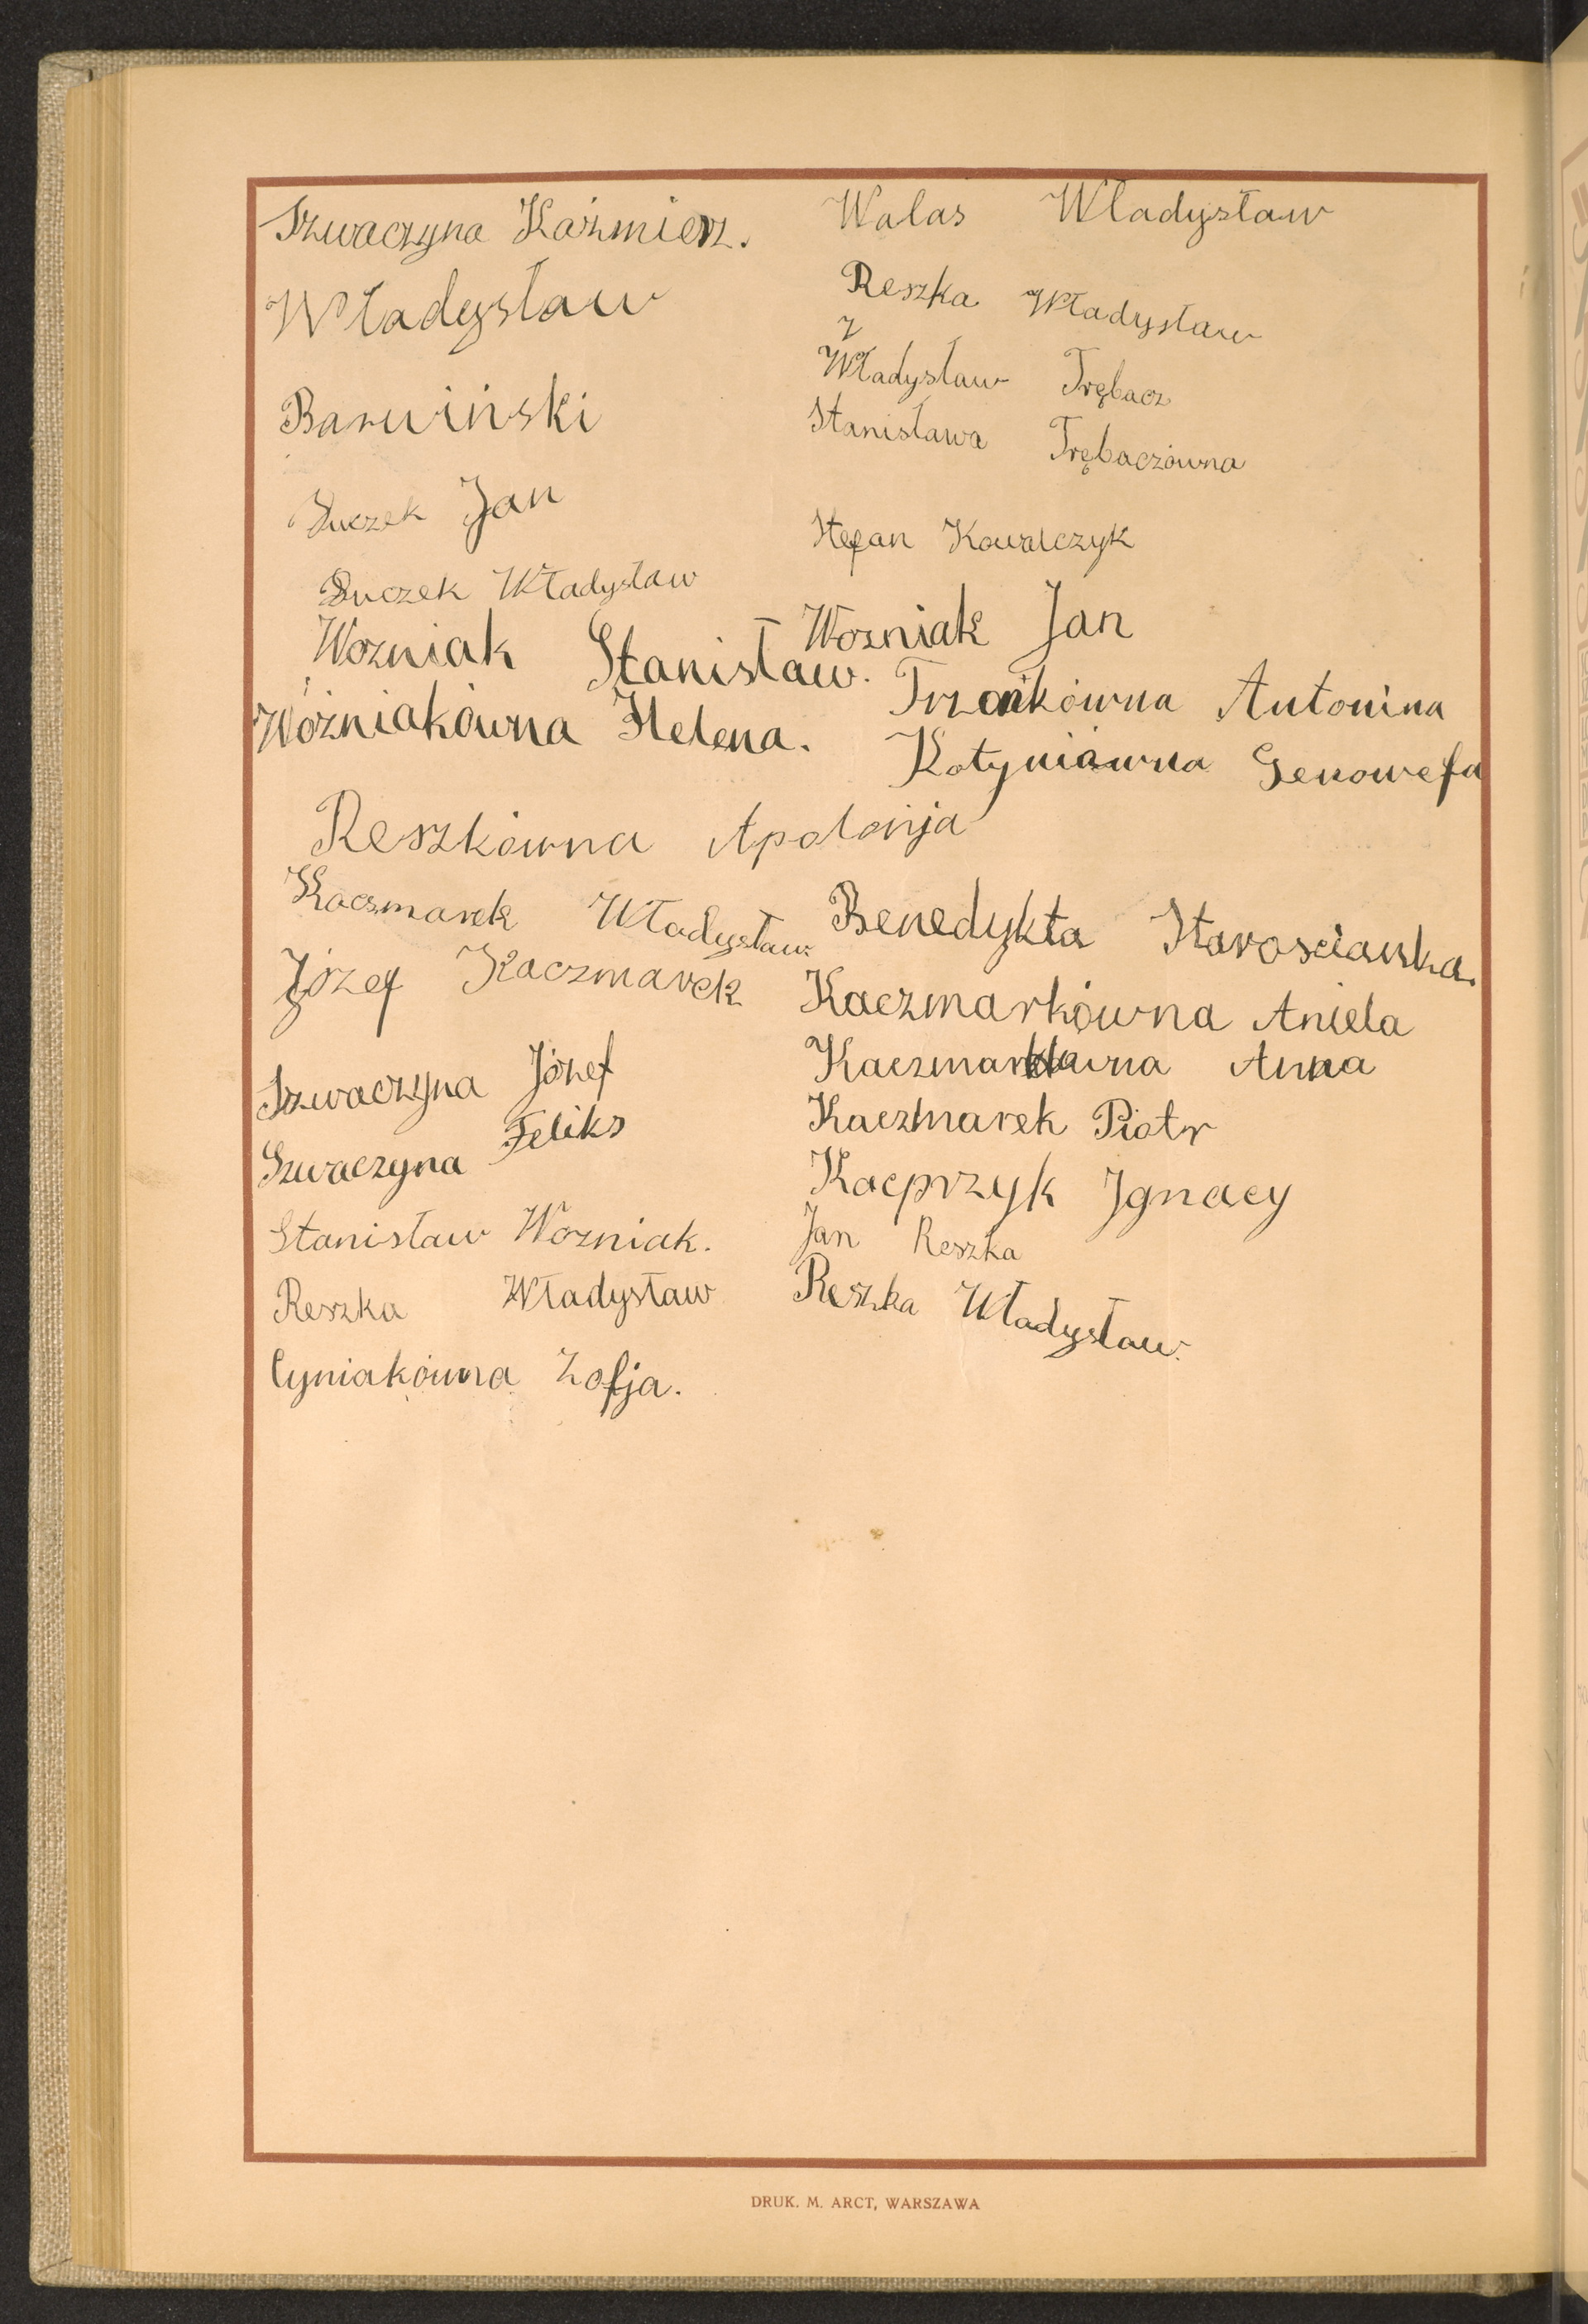 Szwaczyna Kaźmierz.
Władysław
Barwiński
Suczek Jan
Suczek Władysław
Wozniak Stanisław.
Woźniakówna Helena.
Reszkówna Apolonja
Kaczmarek Władysław.
Józef Kaczmarek
Szwaczyna Józef
Szwaczyna Feliks
Stanisław Wozniak.
Reszka Władysław
Cyniakówna Zofja.
Walas Władysław
Reszka Władysław
Władysław Trębacz
Stanisława Trębaczówna
Stefan Kowalczyk
Wozniak Jan
Antonina
Kotyniawna Genowefa
Benedykta Starosciańska.
Kaczmarkówna Aniela
Kaczmarkówna Anna
Kaczmarek Piotr
Kacprzyk Ignacy
Jan Reszka
Reszka Władysław.
DRUK. M. ARCT, WARSZAWA